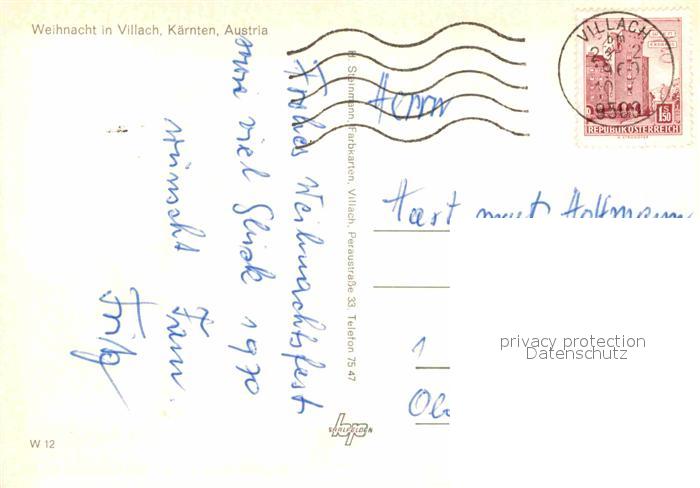 Weihnacht in Villach, Kärnten, Austria
Frohes Weihnachtsfest
sowie viel Glück 1970
wünscht Fam.
Fritz
H. Steinmann, Farbkarten, Villach, Peraustraße 33, Telefon 75 47
SAALFELDEN
W 12
VILLACH
9500
1.50
REPUBLIK ÖSTERREICH
Herrn
Hoffmann
1
privacy protection
Datenschutz